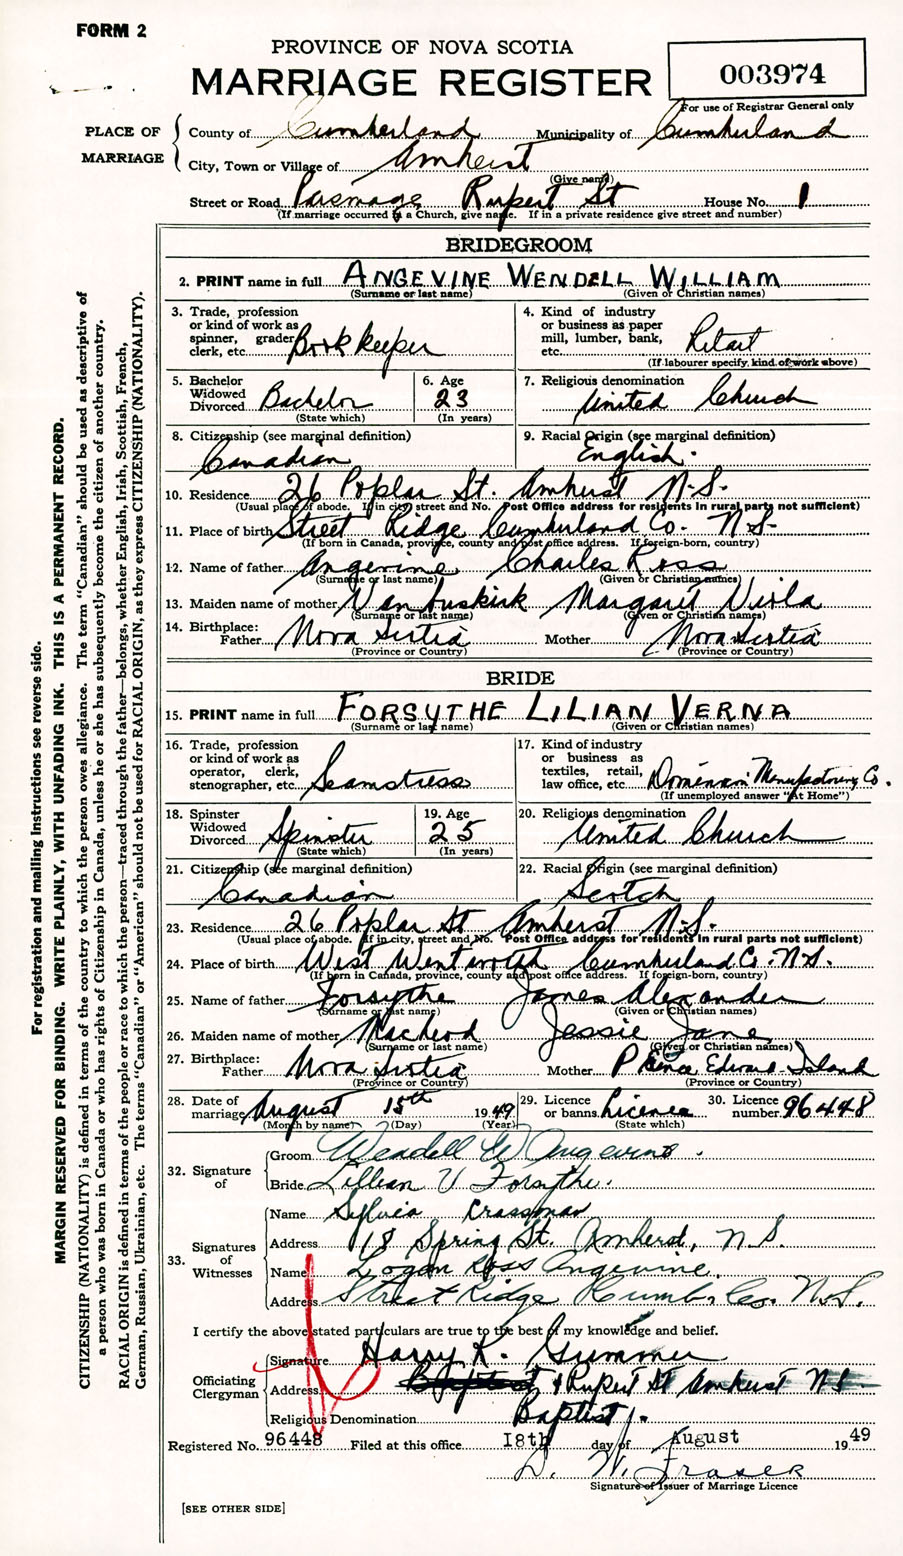 FORM 2
PROVINCE OF NOVA SCOTIA
MARRIAGE REGISTER
003974
For use of Registrar General only
PLACE OF MARRIAGE
County of Cumberland Municipality of Cumberland
City, Town or Village of Amherst
(Give name)
Street or Road Parsonage Rupert St House No. 1
(If marriage occurred in a Church, give name. If in a private residence give street and number)
BRIDEGROOM
2. PRINT name in full ANGEVINE WENDELL WILLIAM
(Surname or last name) (Given or Christian names)
3. Trade, profession or kind of work as spinner, grader clerk, etc. Bookkeeper
4. Kind of industry or business as paper mill, lumber, bank, etc.
(If labourer specify kind of work above)
5. Bachelor Widowed Divorced Bachelor
(State which)
6. Age 23
(In years)
7. Religious denomination United Church
8. Citizenship (see marginal definition) Canadian
9. Racial Origin (see marginal definition) English.
10. Residence 26 Poplar St. Amherst N.S.
(Usual place of abode. If in city, street and No. Post Office address for residents in rural parts not sufficient)
11. Place of birth Street Ridge Cumberland Co. N.S.
(If born in Canada, province, county and post office address. If foreign-born, country)
12. Name of father Angevine Charles Ross
(Surname or last name) (Given or Christian names)
13. Maiden name of mother VanBuskirk Margaret Viola
(Surname or last name) (Given or Christian names)
14. Birthplace: Father Nova Scotia Mother Nova Scotia
(Province or Country) (Province or Country)
BRIDE
15. PRINT name in full FORSYTHE LILIAN VERNA
(Surname or last name) (Given or Christian names)
16. Trade, profession or kind of work as operator, clerk, stenographer, etc. Seamstress
17. Kind of industry or business as textiles, retail, law office, etc. Dominion Manufacturing Co.
(If unemployed answer "At Home")
18. Spinster Widowed Divorced Spinster
(State which)
19. Age 25
(In years)
20. Religious denomination United Church
21. Citizenship (see marginal definition) Canadian
22. Racial Origin (see marginal definition) Scotch
23. Residence 26 Poplar St Amherst N.S.
(Usual place of abode. If in city, street and No. Post Office address for residents in rural parts not sufficient)
24. Place of birth West Wentworth Cumberland Co. N.S.
(If born in Canada, province, county and post office address. If foreign-born, country)
25. Name of father Forsythe James Alexander
(Surname or last name) (Given or Christian names)
26. Maiden name of mother MacLeod Jessie Jane
(Surname or last name) (Given or Christian names)
27. Birthplace: Father Nova Scotia Mother Prince Edward Island
(Province or Country) (Province or Country)
28. Date of marriage August 15th 1949
(Month by name) (Day) (Year)
29. Licence or banns Licence
(State which)
30. Licence number 96448
32. Signature of
Groom Wendell W Angevine.
Bride Lillian V Forsythe.
33. Signatures of Witnesses
Name Sylvia Crossman
Address 18 Spring St. Amherst, N.S.
Name Logan Ross Angevine.
Address Street Ridge Cumb. Co. N.S.
I certify the above stated particulars are true to the best of my knowledge and belief.
Officiating Clergyman
Signature Harry K. Gummer
Address 1 Rupert St Amherst N.S.
Religious Denomination Baptist.
Registered No. 96448 Filed at this office I8th day of August 1949
D. W. Fraser
Signature of Issuer of Marriage Licence
[SEE OTHER SIDE]
For registration and mailing Instructions see reverse side.
MARGIN RESERVED FOR BINDING. WRITE PLAINLY, WITH UNFADING INK. THIS IS A PERMANENT RECORD.
CITIZENSHIP (NATIONALITY) is defined in terms of the country to which the person owes allegiance. The term "Canadian" should be used as descriptive of
a person who was born in Canada or who has rights of Citizenship in Canada, unless he or she has subsequently become the citizen of another country.
RACIAL ORIGIN is defined in terms of the people or race to which the person—traced through the father—belongs, whether English, Irish, Scottish, French,
German, Russian, Ukrainian, etc. The terms "Canadian" or "American" should not be used for RACIAL ORIGIN, as they express CITIZENSHIP (NATIONALITY).